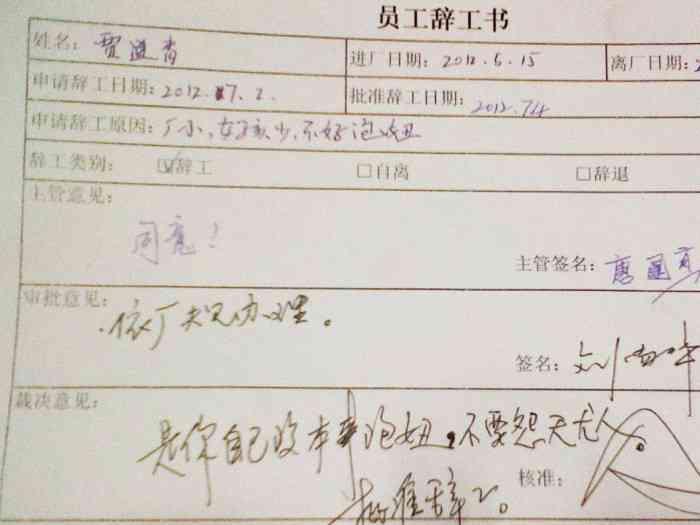 员工辞工书
姓名: 贾进青 进厂日期: 2012.6.15 离厂日期:
申请辞工日期: 2012.7.2. 批准辞工日期: 2012.7.4
申请辞工原因: 厂小,女孩少,不好泡妞
辞工类别: ☑辞工 □自离 □辞退
主管意见:
同意!
主管签名:
审批意见:
依厂规办理。
签名: 刘
裁决意见:
是你自己没本事泡妞,不要怨天尤人。
核准:
批准辞工。